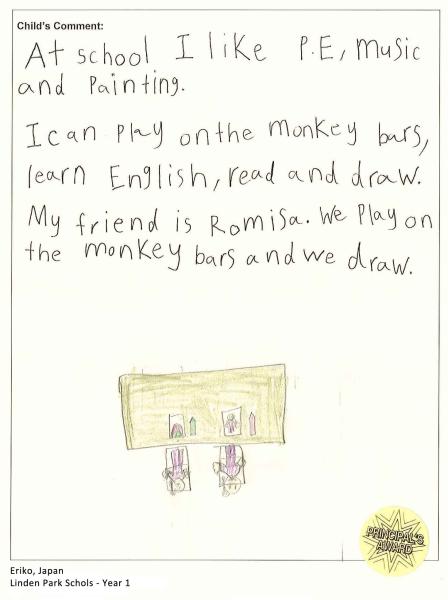 Child's Comment:
At school I like P.E, music
and Painting.
I can Play on the monkey bars,
learn English, read and draw.
My friend is Romisa. We Play on
the monkey bars and we draw.
PRINCIPAL'S
AWARD
Eriko, Japan
Linden Park Schols - Year 1